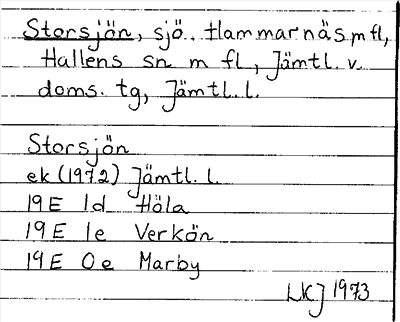 Storsjön, sjö. Hammarnäs m fl,
Hallens sn m fl, Jämtl. v.
doms. tg, Jämtl. l.
Storsjön
ek (1972) Jämtl. l.
19 E 1d Höla
19 E 1e Verkön
19 E 0e Marby
LKJ 1973